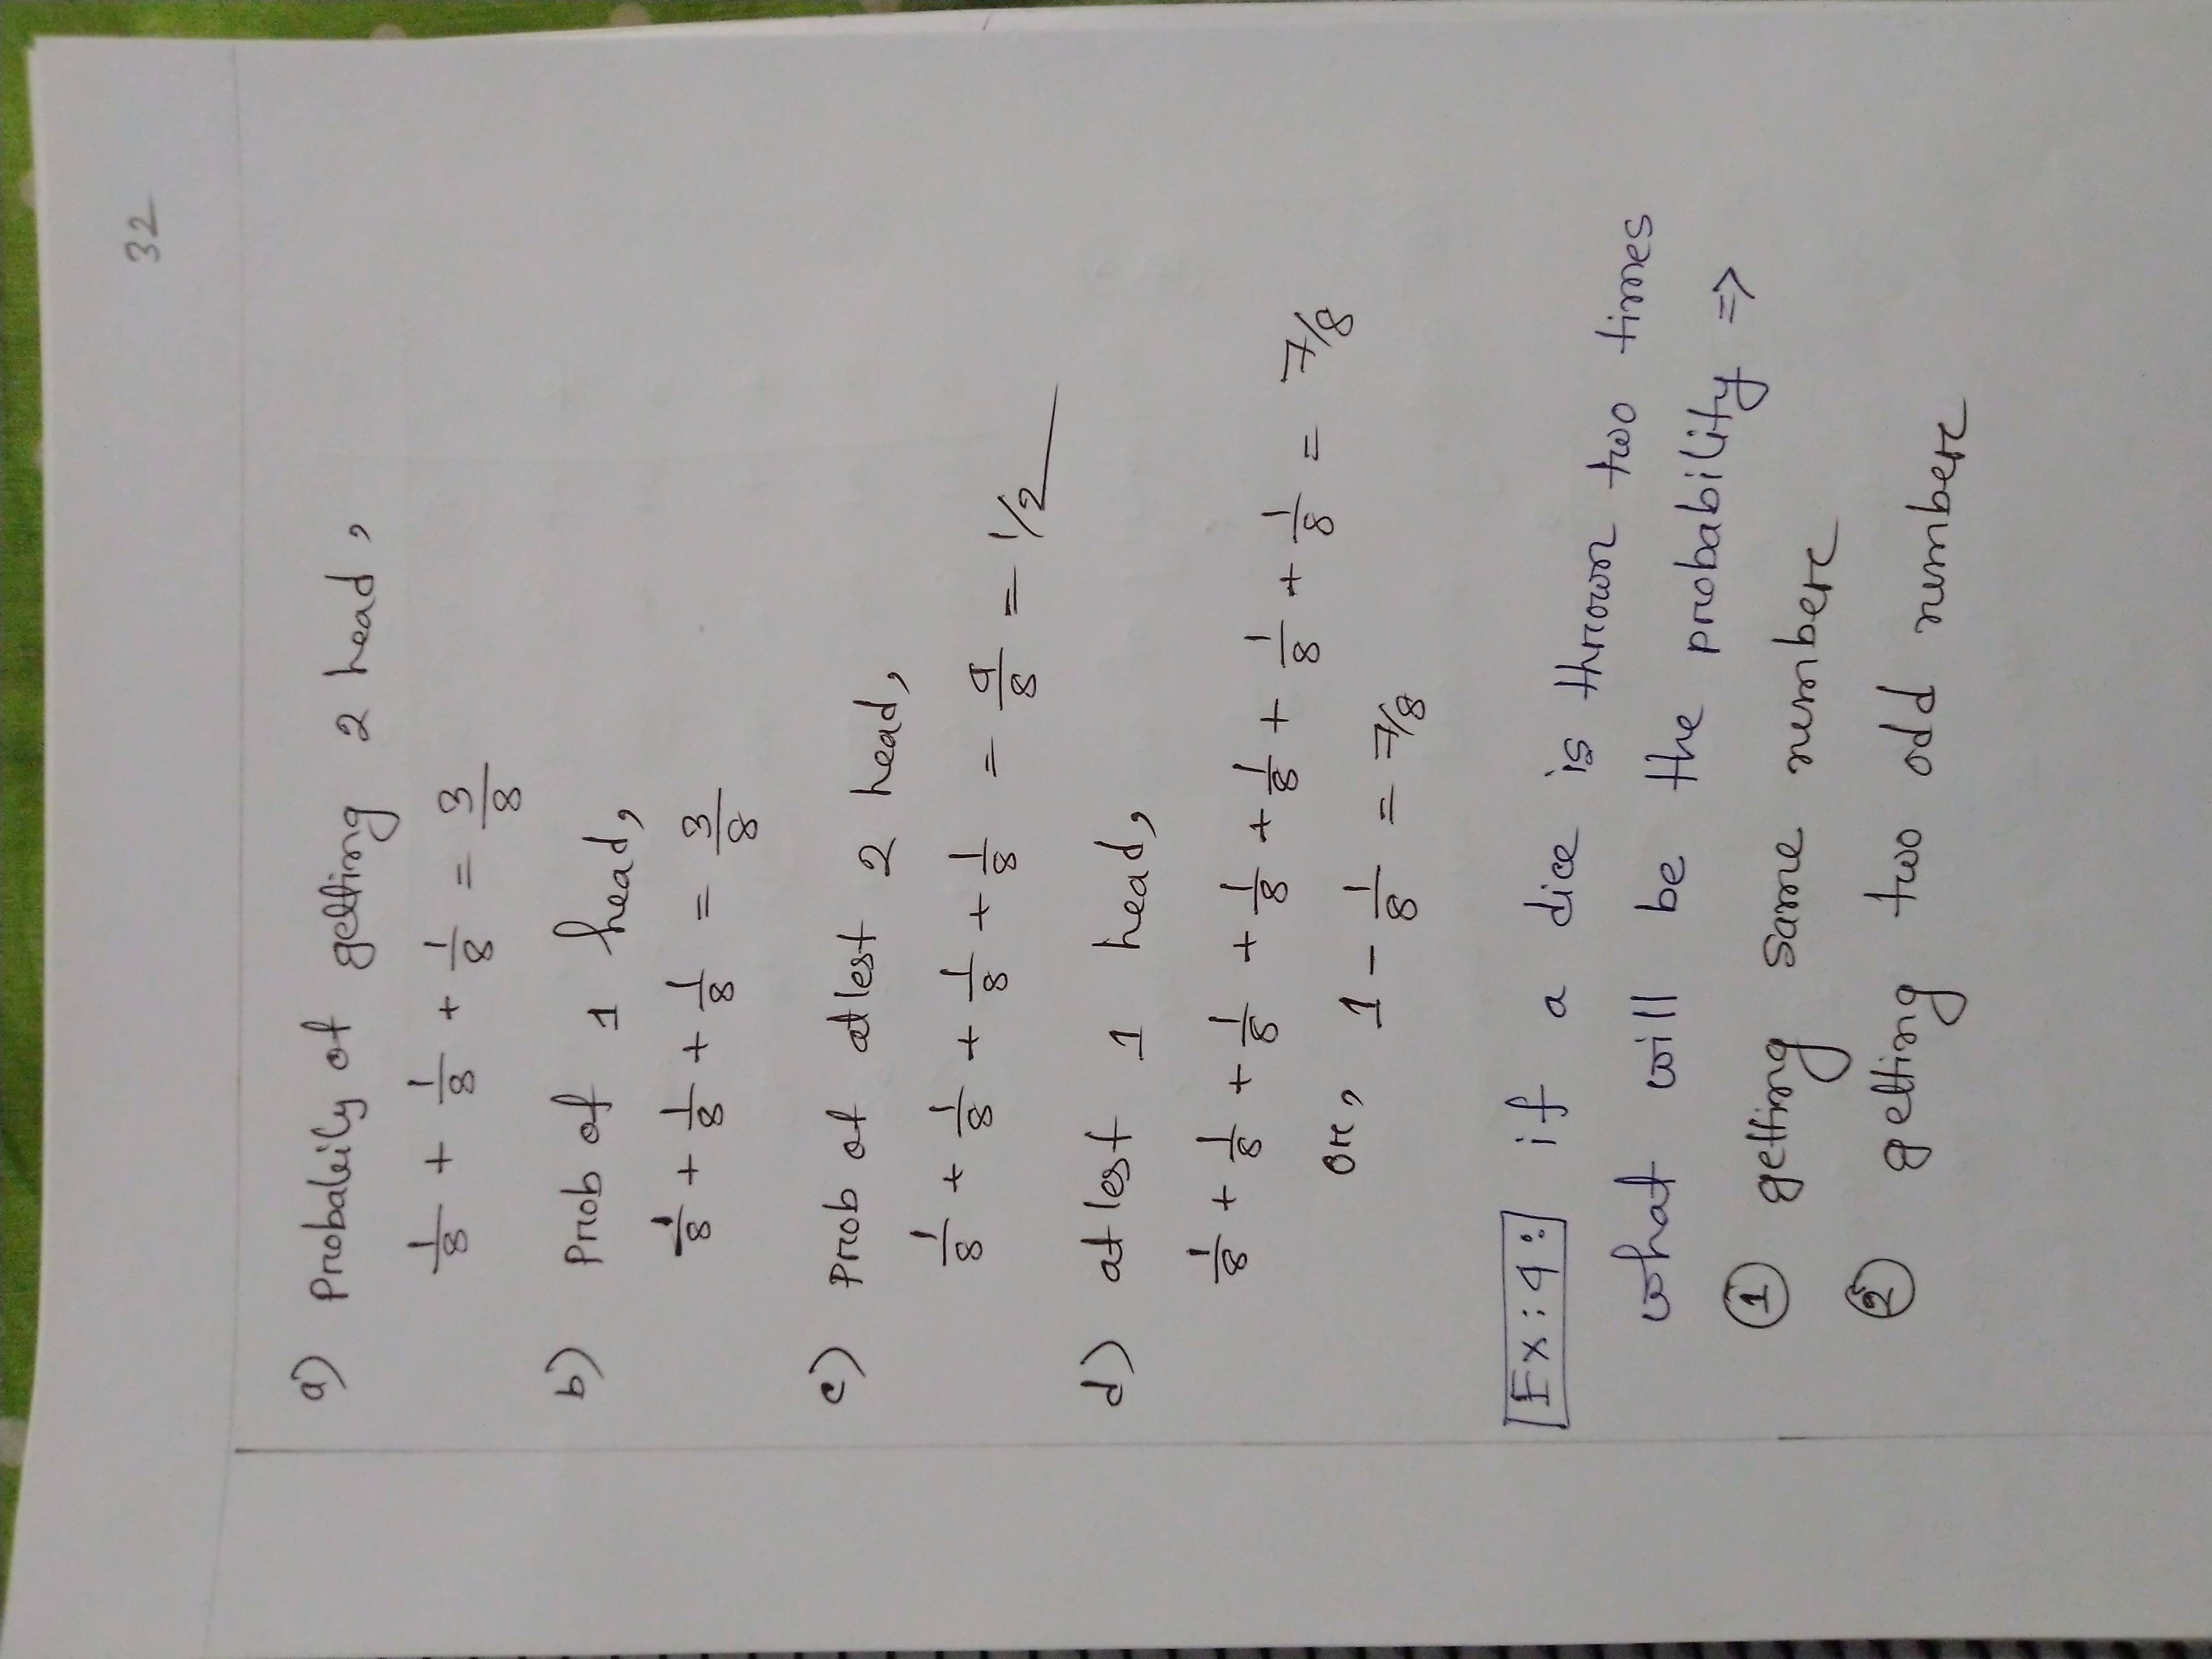 32
a) Probabeily of getting 2 head,
1/8 + 1/8 + 1/8 = 3/8
b) Prob of 1 head,
1/8 + 1/8 + 1/8 = 3/8
c) Prob of atlest 2 head,
1/8 + 1/8 + 1/8 + 1/8 = 4/8 = 1/2
d) atlest 1 head,
1/8 + 1/8 + 1/8 + 1/8 + 1/8 + 1/8 + 1/8 = 7/8
or, 1 - 1/8 = 7/8
Ex:4: if a dice is thrown two times
what will be the probability ⇒
① getting same number
② getting two odd number